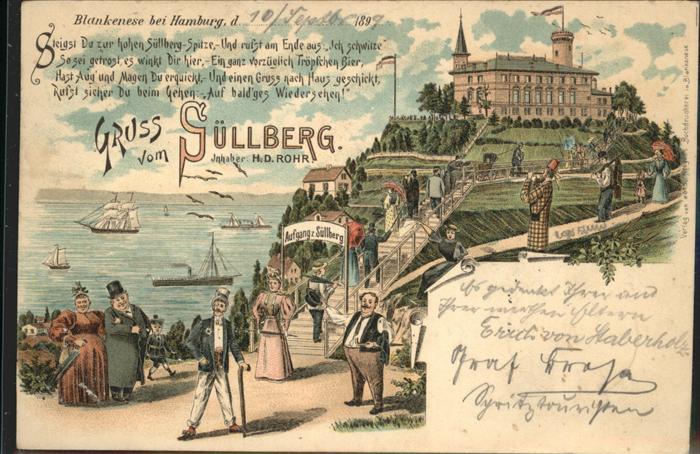 Blankenese bei Hamburg, d. 10/Septbr 1899
Steigst Du zur hohen Süllberg-Spitze,- Und rufst am Ende aus: „Ich schwitze“
So sei getrost es winkt Dir hier,- Ein ganz vorzüglich Tröpfchen Bier,
Hast Aug' und Magen Du erquickt,- Und einen Gruss nach Haus geschickt,
Rufst sicher Du beim Gehen: „Auf bald'ges Wiedersehen!“
GRUSS vom SÜLLBERG.
Inhaber: H.D. ROHR
Aufgang z. Süllberg
Es gedenket Ihrer und
Ihrer werthen Eltern
Erich von
Graf
Spritztouristen
Verlag